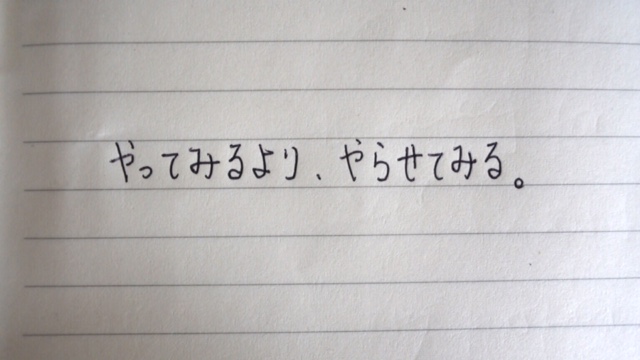 やってみるより、やらせてみる。